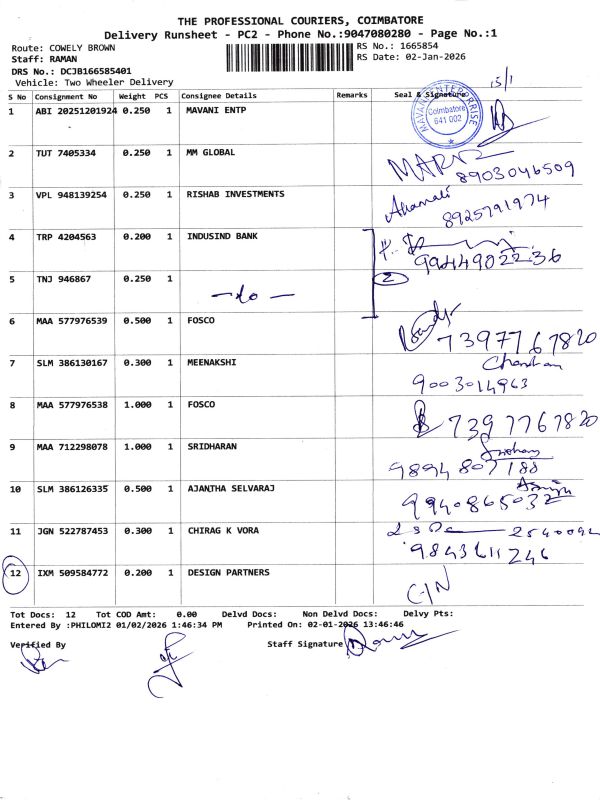 THE PROFESSIONAL COURIERS, COIMBATORE
Delivery Runsheet - PC2 - Phone No.:9047080280 - Page No.:1
Route: COWELY BROWN
RS No.: 1665854
Staff: RAMAN
RS Date: 02-Jan-2026
DRS No.: DCJB166585401
Vehicle: Two Wheeler Delivery
15/1
S No Consignment No Weight PCS Consignee Details Remarks Seal & Signature
MAVANI ENTERPRISE
Coimbatore
641 002
1 ABI 20251201924 0.250 1 MAVANI ENTP
2 TUT 7405334 0.250 1 MM GLOBAL
8903046509
3 VPL 948139254 0.250 1 RISHAB INVESTMENTS
8925791974
4 TRP 4204563 0.200 1 INDUSIND BANK
9944902236
5 TNJ 946867 0.250 1 -do- 2
6 MAA 577976539 0.500 1 FOSCO
7397767820
7 SLM 386130167 0.300 1 MEENAKSHI
9003014963
8 MAA 577976538 1.000 1 FOSCO 7397767820
9 MAA 712298078 1.000 1 SRIDHARAN
9894807188
10 SLM 386126335 0.500 1 AJANTHA SELVARAJ
9940865032
11 JGN 522787453 0.300 1 CHIRAG K VORA
9843611246
12 IXM 509584772 0.200 1 DESIGN PARTNERS
Tot Docs: 12 Tot COD Amt: 0.00 Delvd Docs: Non Delvd Docs: Delvy Pts:
Entered By :PHILOMI2 01/02/2026 1:46:34 PM Printed On: 02-01-2026 13:46:46
Verified By Staff Signature